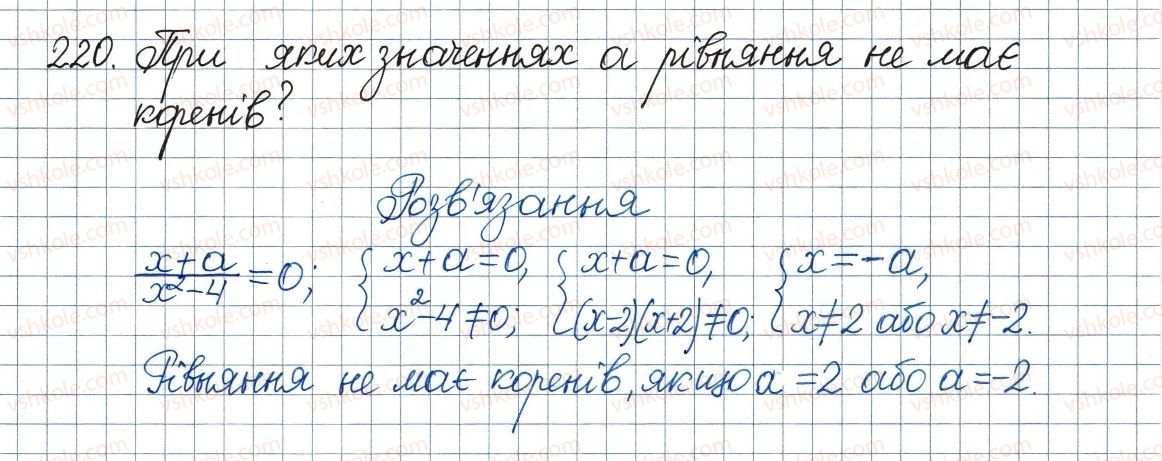 220. При яких значеннях а рівняння не має
коренів?
Розв'язання
(x+a)/(x²-4) = 0; { x+a=0, x²-4≠0; { x+a=0, (x-2)(x+2)≠0; { x=-a, x≠2 або x≠-2.
Рівняння не має коренів, якщо a=2 або a=-2.